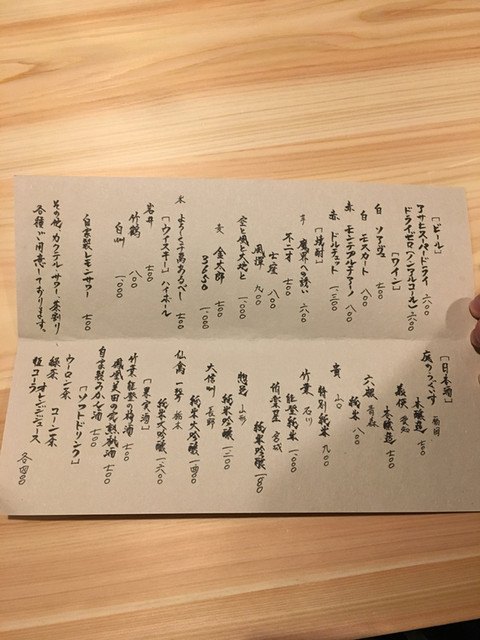 ［ビール］
アサヒスーパードライ 六〇〇
ドライゼロ（ノンアルコール） 六〇〇
［ワイン］
白 ソアヴェ 七〇〇
白 モスカート 八〇〇
赤 モンテプルチアーノ 八〇〇
赤 ドルチェット 一、三〇〇
［焼酎］
芋 魔界への誘い 六〇〇
不二才 七〇〇
七窪 八〇〇
風憚 九〇〇
空と風と大地と 一、〇〇〇
麦 金太郎 七〇〇
3650 一、〇〇〇
米 よろしく千萬あるべし 七〇〇
［ウイスキー］ハイボール
岩井 七〇〇
竹鶴 八〇〇
白州 一、〇〇〇
自家製レモンサワー 七〇〇
その他、カクテル、サワー、茶割り
各種ご用意しております。
［日本酒］
庭のうぐいす 福岡
本醸造 七〇〇
義侠 愛知
本醸造 七〇〇
六根 青森
純米 八〇〇
貴 山口
特別純米 九〇〇
竹葉 石川
能登純米 一、〇〇〇
伯楽星 宮城
純米吟醸
惣邑 山形
純米吟醸 一、三〇〇
大信州 長野
純米大吟醸 一、四〇〇
仙禽 一聲 栃木
純米大吟醸 一、六〇〇
［果実酒］
竹葉 能登の梅酒 七〇〇
鳳凰美田の完熟桃酒 七〇〇
自家製みかん酒 七〇〇
［ソフトドリンク］
ウーロン茶 コーン茶
緑茶 オレンジジュース
コーラ 各四〇〇